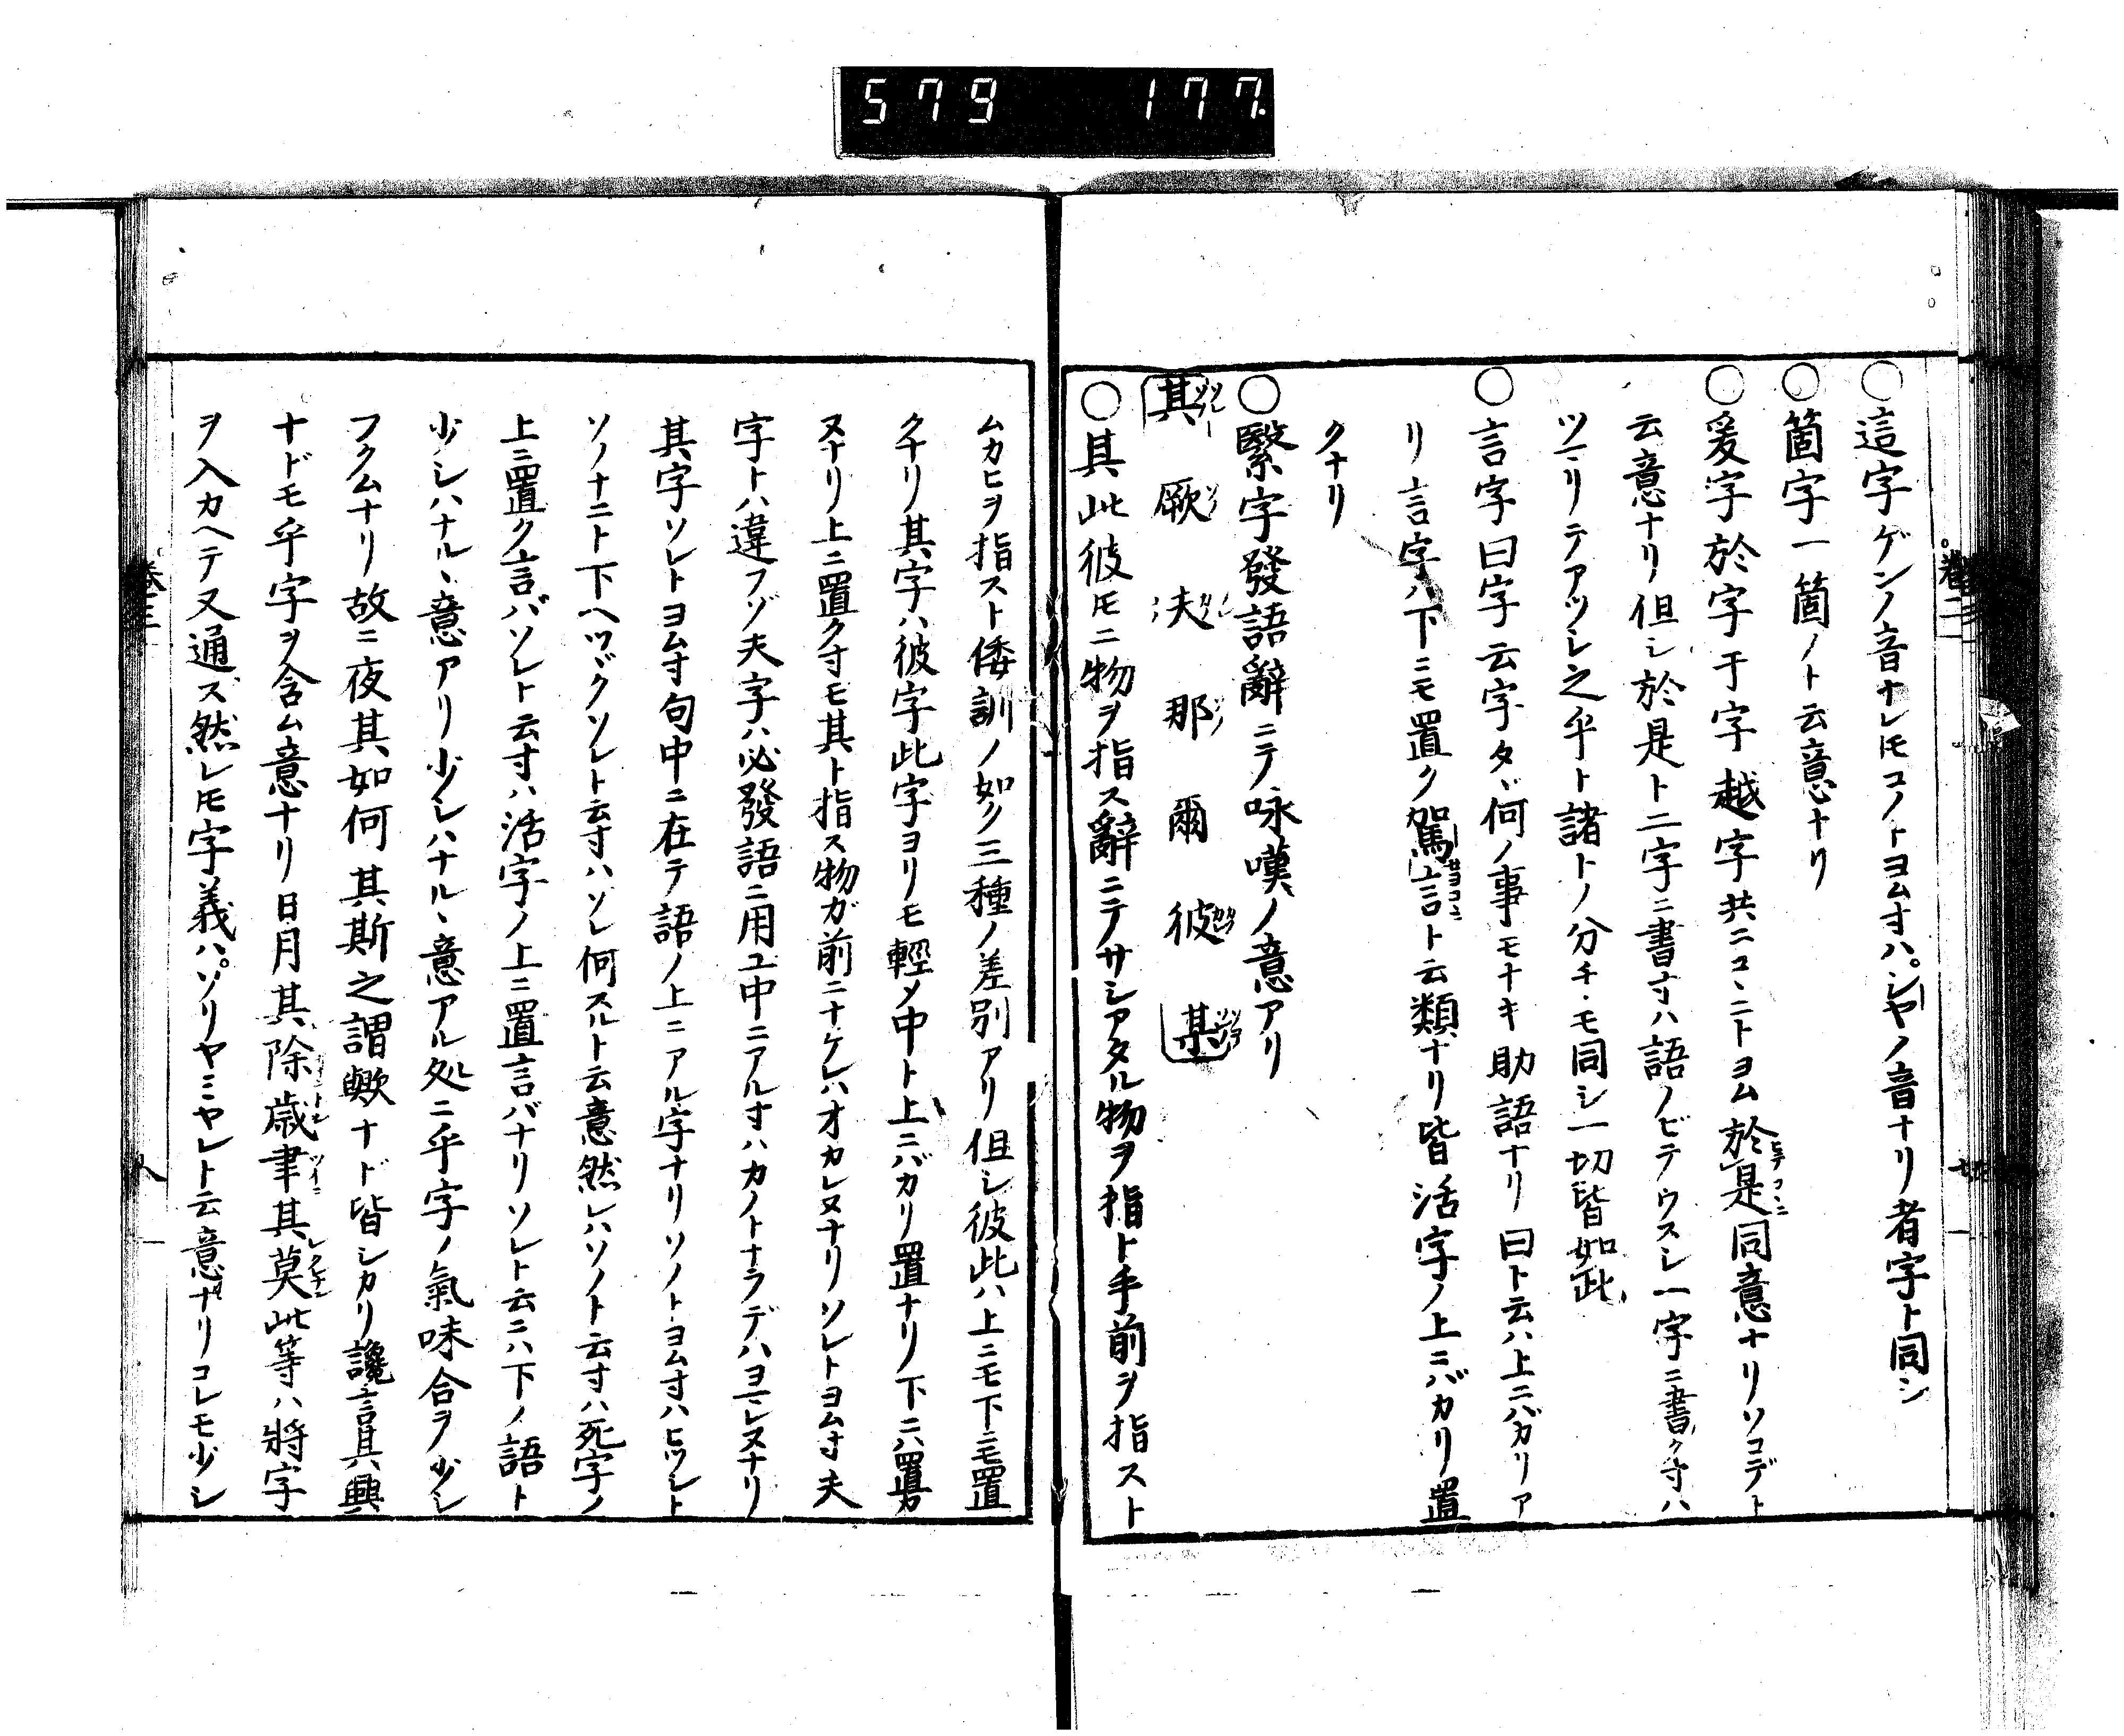 579 177
○這字ゲンノ音ナレ𪜈コノトヨム寸ハシヤノ音ナリ者字ト同シ
○箇字一箇ノト云意ナリ
○爰字於字于字越字共ニコヽニトヨム於是同意ナリソコデト
云意ナリ但シ於是ト二字ニ書寸ハ語ノビテウスシ一字ニ書ク寸ハ
ツマリテアツシ之乎ト諸トノ分チモ同シ一切皆如此
○言字曰字云字タヾ何ノ事モナキ助語ナリ曰ト云ハ上ニバカリア
リ言字ハ下ニモ置ク駕言ト云類ナリ皆活字ノ上ニバカリ置
クナリ
○繄字發語辭ニテ咏嘆ノ意アリ
其 厥 夫 那 爾 彼 某
○其此彼𪜈ニ物ヲ指ス辭ニテサシアタル物ヲ指ト手前ヲ指スト
ムカヒヲ指スト倭訓ノ如ク三種ノ差別アリ但シ彼此ハ上ニモ下ニモ置
クナリ其字ハ彼字此字ヨリモ輕メ中ト上ニバカリ置ナリ下ニハ置カ
ヌナリ上ニ置ク寸モ其ト指ス物ガ前ニナケレハオカレヌナリソレトヨム寸夫
字トハ違フゾ夫字ハ必發語ニ用ユ中ニアル寸ハカノトナラデハヨマレヌナリ
其字ソレトヨム寸句中ニ在テ語ノ上ニアル字ナリソノトヨム寸ハヒツシト
ソノナニト下ヘツヾクソレト云寸ハソレ何スルト云意然レハソノト云寸ハ死字ノ
上ニ置ク言バソレト云寸ハ活字ノ上ニ置言バナリソレト云ニハ下ノ語ト
少シハナルヽ意アリ少シハナルヽ意アル処ニ乎字ノ氣味合ヲ少シ
フクムナリ故ニ夜其如何其斯之謂歟ナド皆シカリ讒言其興
ナドモ乎字ヲ含ム意ナリ日月其除歳聿其莫此等ハ將字
ヲ入カヘテ又通ス然レ𪜈字義ハソリヤミヤレト云意ナリコレモ少シ